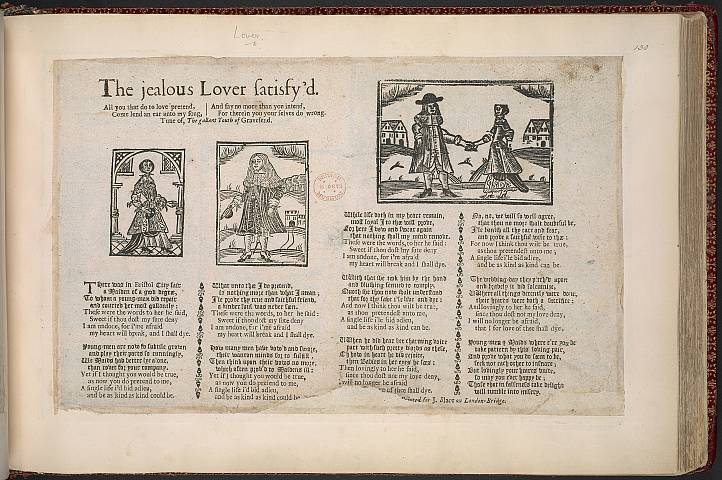 Lover
130
The jealous Lover satisfy'd.
All you that do to love pretend,
Come lend an ear unto my song,
And say no more than you intend,
For therein you your selves do wrong.
Tune of, The gallant Youth of Gravesend.
There was in Bristol City fair
a Maiden of a good degree,
To whom a young-man did repair
and courted her most gallantly:
These were the words to her he said:
Sweet if thou dost my suit deny
I am undone, for i'me afraid
my heart will break, and I shall dye.
Young-men are now so subtile grown
and play their parts so cunningly,
We Maids had better lye alone,
than too
for your company.
Yet if I thought you would be true,
as now you do pretend to me,
A single life i'd bid adieu,
and be as kind as kind could be.
What unto thee I do pretend,
is nothing more than what I mean;
I'le prove thy true and faithful friend,
a kinder soul was never seen.
These were the words to her he said:
Sweet if thou dost my suit deny
I am undone, for i'me afraid
my heart will break and I shall dye.
How many men have vow'd and swore,
their wanton minds for to fulfill
Then think upon their vows no more,
which often prov'd to Maidens ill:
Yet if I thought you would be true,
as now you do pretend to me,
A single life i'd bid adieu,
and be as kind as kind could be
While life doth in my heart remain,
most loyal I to thee will prove,
For here I vow and swear again
that nothing shall my mind remove.
These were the words, to her he said:
Sweet if thou dost my suit deny
I am undone, for i'me afraid
my heart will break and I shall dye.
With that she took him by the hand
and blushing seemed to comply,
Quoth she thou shalt understand
that for thy sake i'le live and dye:
And now I think thou wilt be true,
as thou pretendest unto me,
A single life i'd bid adieu,
and be as kind as kind can be.
When he did hear her charming voice
part with such pretty words as these,
O how his heart he did rejoice,
then Ladies in her eyes he sees:
Then lovingly to her he said,
since thou dost not my love deny,
I will no longer be afraid
of thee shall dye.
No, no, we will so well agree,
that thou no more shalt doubtful be,
I'le banish all thy care and fear,
and prove a faithful wife to thee:
For now I think thou wilt be true,
as thou pretendest unto me;
A single life i'le bid adieu,
and be as kind as kind can be.
The wedding-day they pitch'd upon
and bravely it did solemnize,
Where all things decently were done,
their hearts were both a sacrifice:
And lovingly to her he said,
since thou dost not my love deny,
I will no longer be afraid,
that I for love of thee shall dye,
Young-men & Maids where e're you be
take pattern by this loving pair,
And prove what you do seem to be,
seek not each other to insnare;
But lovingly your hearts unite,
so may you ever happy be;
Those that in falseness take delight
will tumble into misery.
Printed for J. Blare on London-Bridge.